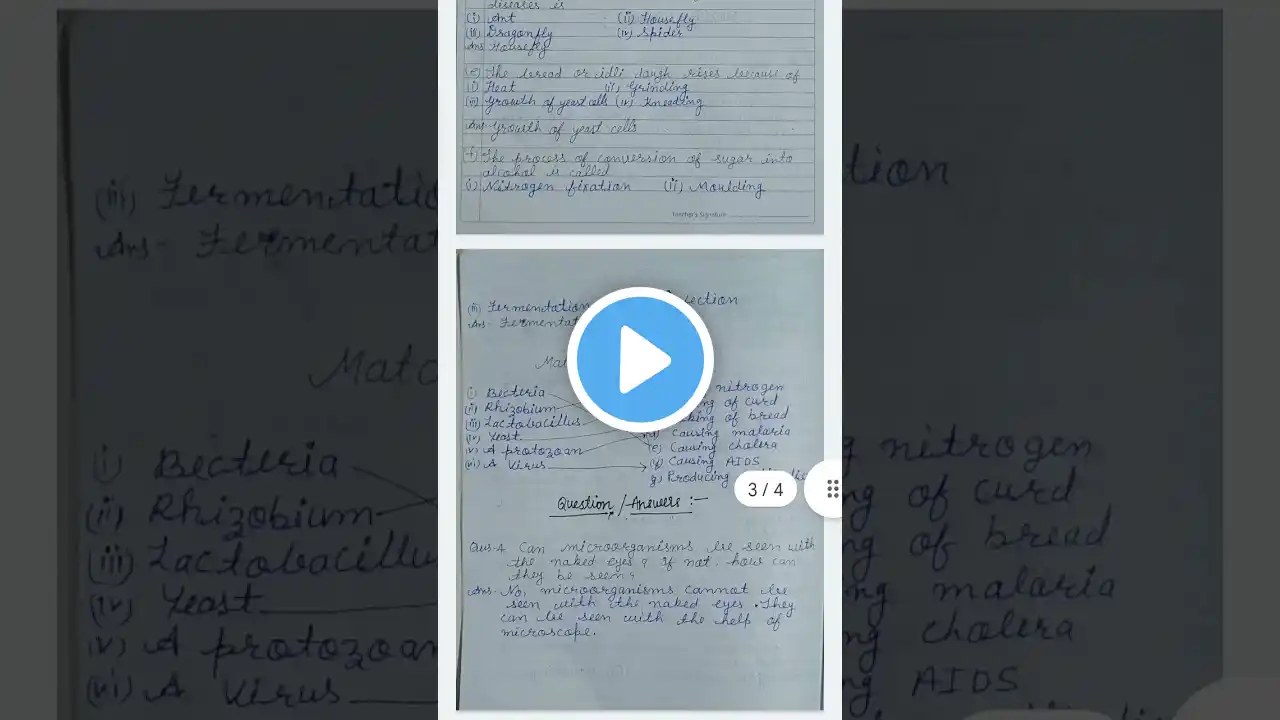 diseases is
(i) Ant (ii) Housefly
(iii) Dragonfly (iv) Spider
Ans Housefly
(e) The bread or idli dough rises because of
(i) Heat (ii) Grinding
(iii) Growth of yeast cells (iv) Kneading
Ans- Growth of yeast cells
(f) The process of conversion of sugar into
alcohol is called
(i) Nitrogen fixation (ii) Moulding
Teacher's Signature
(iii) Fermentation
Ans- Fermentat
Mat
(i) Becteria nitrogen
(ii) Rhizobium of curd
(iii) Lactobacillus of bread
(iv) Yeast causing malaria
(v) A protozoan (e) Causing cholera
(vi) A Virus Causing AIDS
g) Producing
3 / 4
Question / Answers :-
Que-1 Can microorganisms be seen with
the naked eyes? If not, how can
they be seen?
Ans- No, microorganisms cannot be
seen with the naked eyes. They
can be seen with the help of
microscope.
(iii) Fermentatio
Ans- Fermentat
Matc
(i) Becteria
(ii) Rhizobium
(iii) Lactobacillu
(iv) Yeast
(v) A protozoan
(vi) A Virus
tion
nitrogen
ng of curd
ng of bread
ng malaria
cholera
AIDS